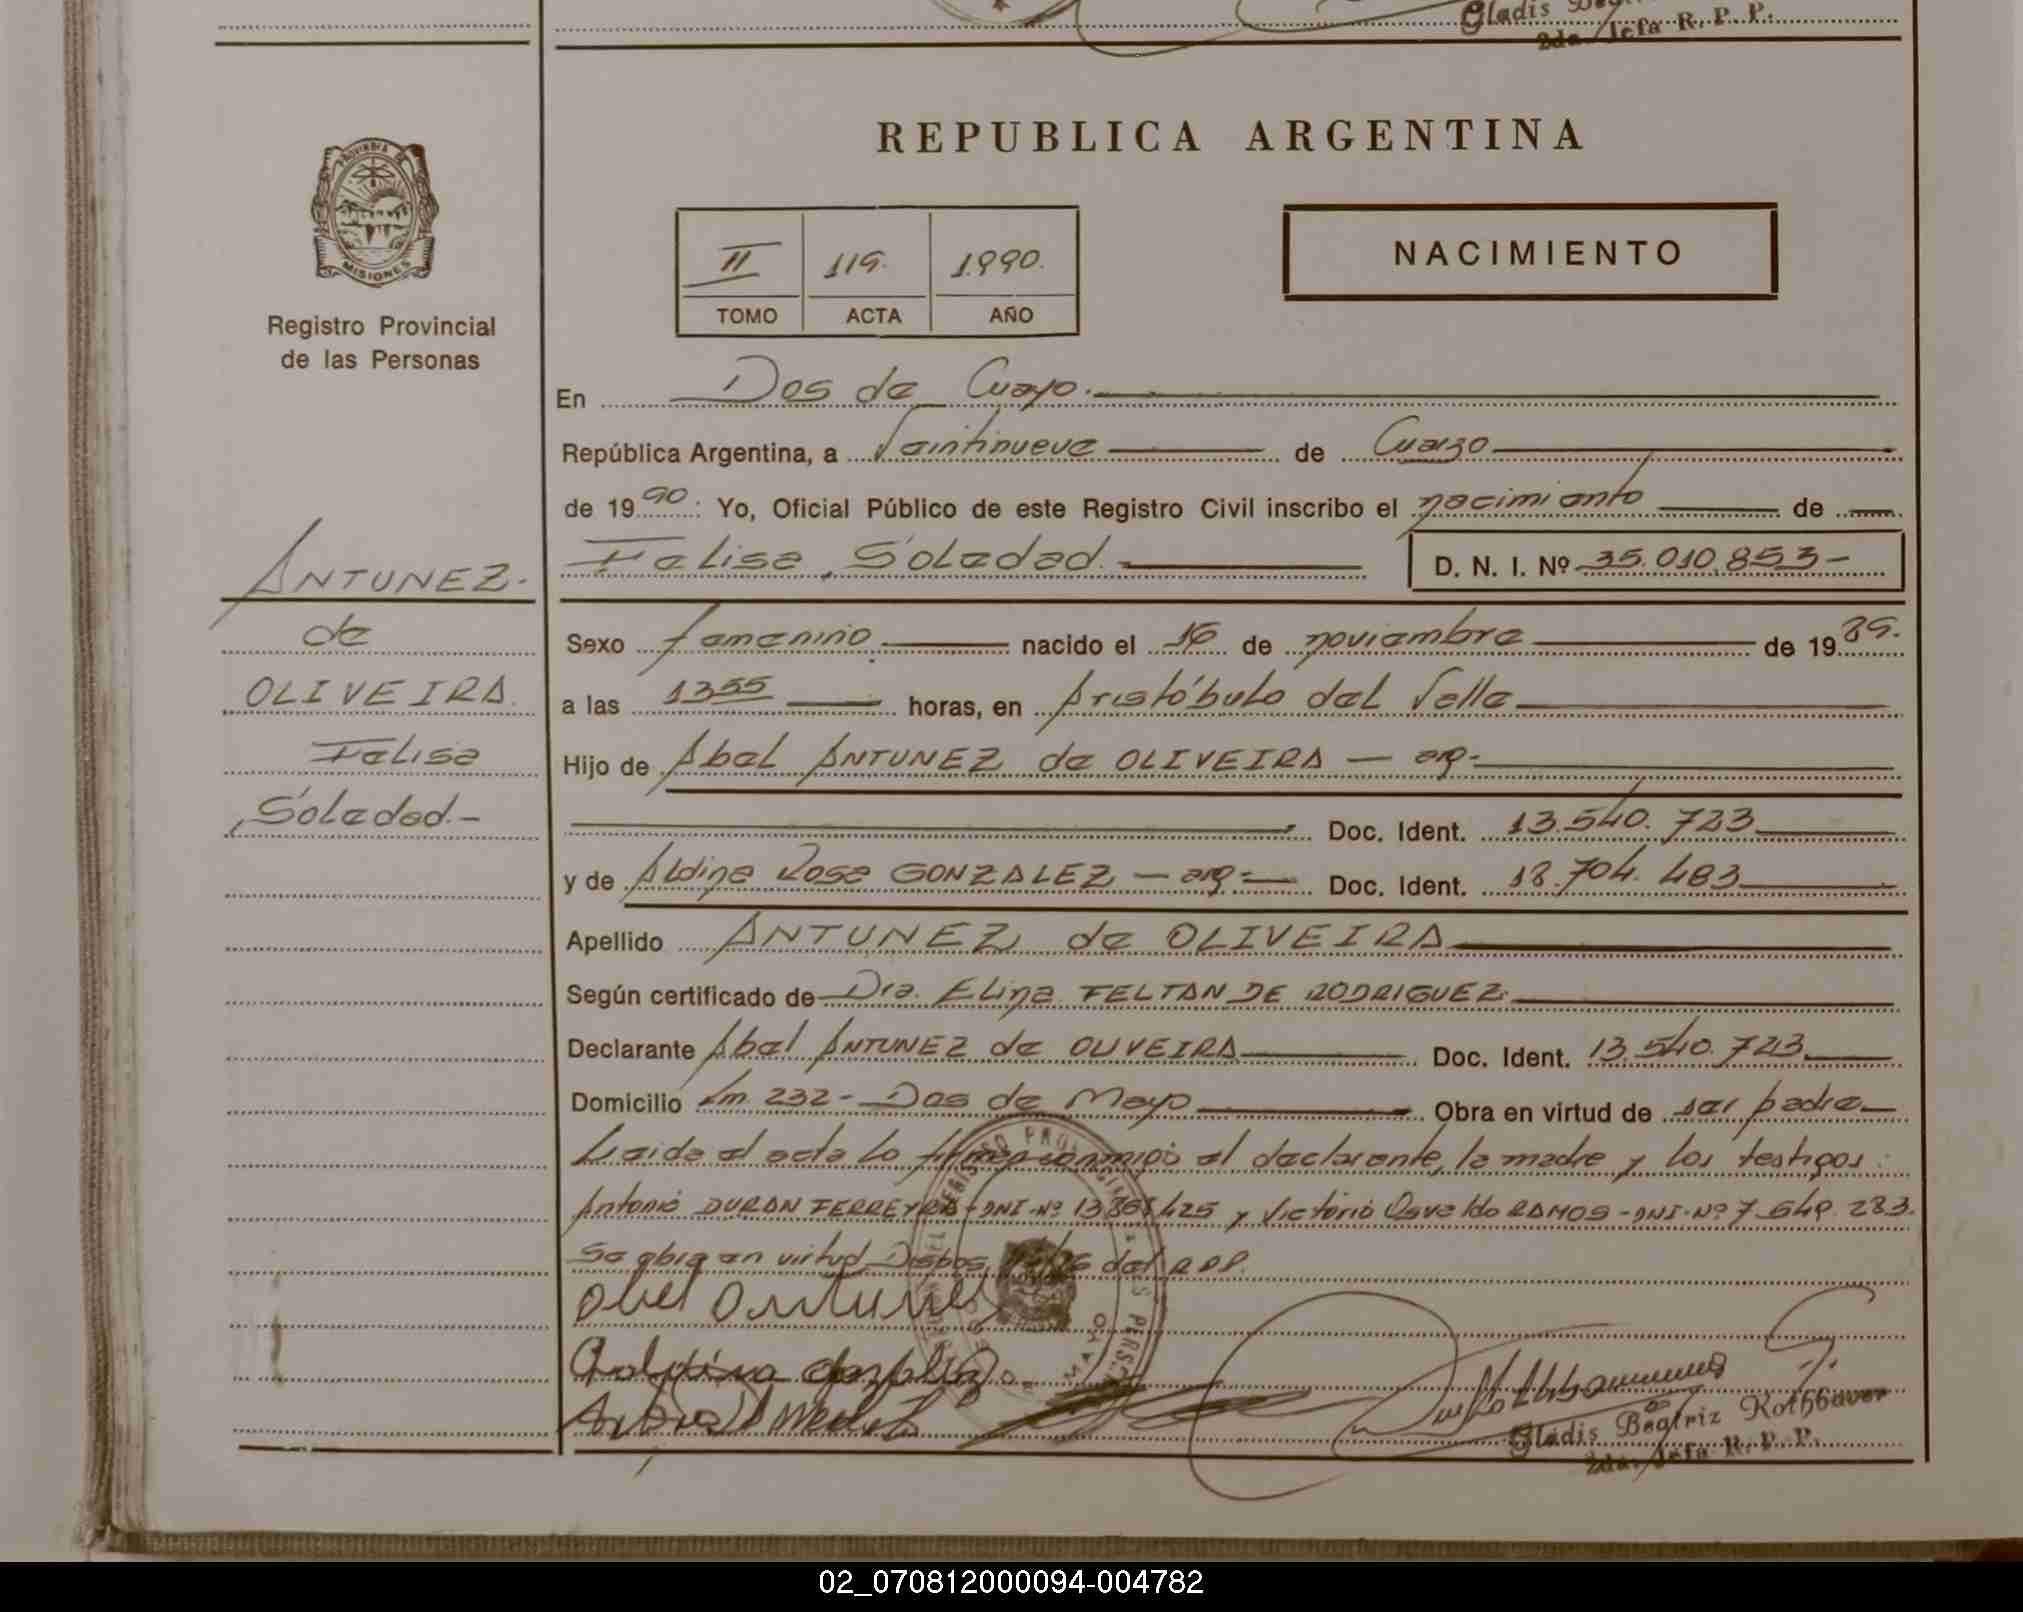 Gladis
2da. Jefa R. P. P.
REPUBLICA ARGENTINA
PROVINCIA DE
MISIONES
Registro Provincial
de las Personas
II 119. 1990.
TOMO ACTA AÑO
NACIMIENTO
En Dos de Mayo.
República Argentina, a Veintinueve de Marzo
de 1990: Yo, Oficial Público de este Registro Civil inscribo el nacimiento de
Felisa Soledad. D. N. I. Nº 35.010.853-
ANTUNEZ.
de
OLIVEIRA.
Felisa
Soledad.-
Sexo femenino nacido el 16 de noviembre de 1989.
a las 1355 horas, en Aristóbulo del Valle
Hijo de Abel ANTUNEZ de OLIVEIRA — arg.-
Doc. Ident. 13.540.723
y de Aldina Rosa GONZALEZ — arg.- Doc. Ident. 18.704.483
Apellido ANTUNEZ de OLIVEIRA
Según certificado de Dra. Elina FELTAN DE RODRIGUEZ
Declarante Abel ANTUNEZ de OLIVEIRA Doc. Ident. 13.540.723
Domicilio Km. 232 - Dos de Mayo Obra en virtud de ser padre
Leida el acta la firman conmigo el declarante, la madre y los testigos:
Antonio DURAN FERREYRA - DNI-Nº 425 y Victorio Osvaldo RAMOS - DNI-Nº 7.649.283.
Se obra en virtud Dispos. del RPP.
Abel Antunez
Gladis Beatriz Rothbauer
2da. Jefa R. P. P.
02_070812000094-004782